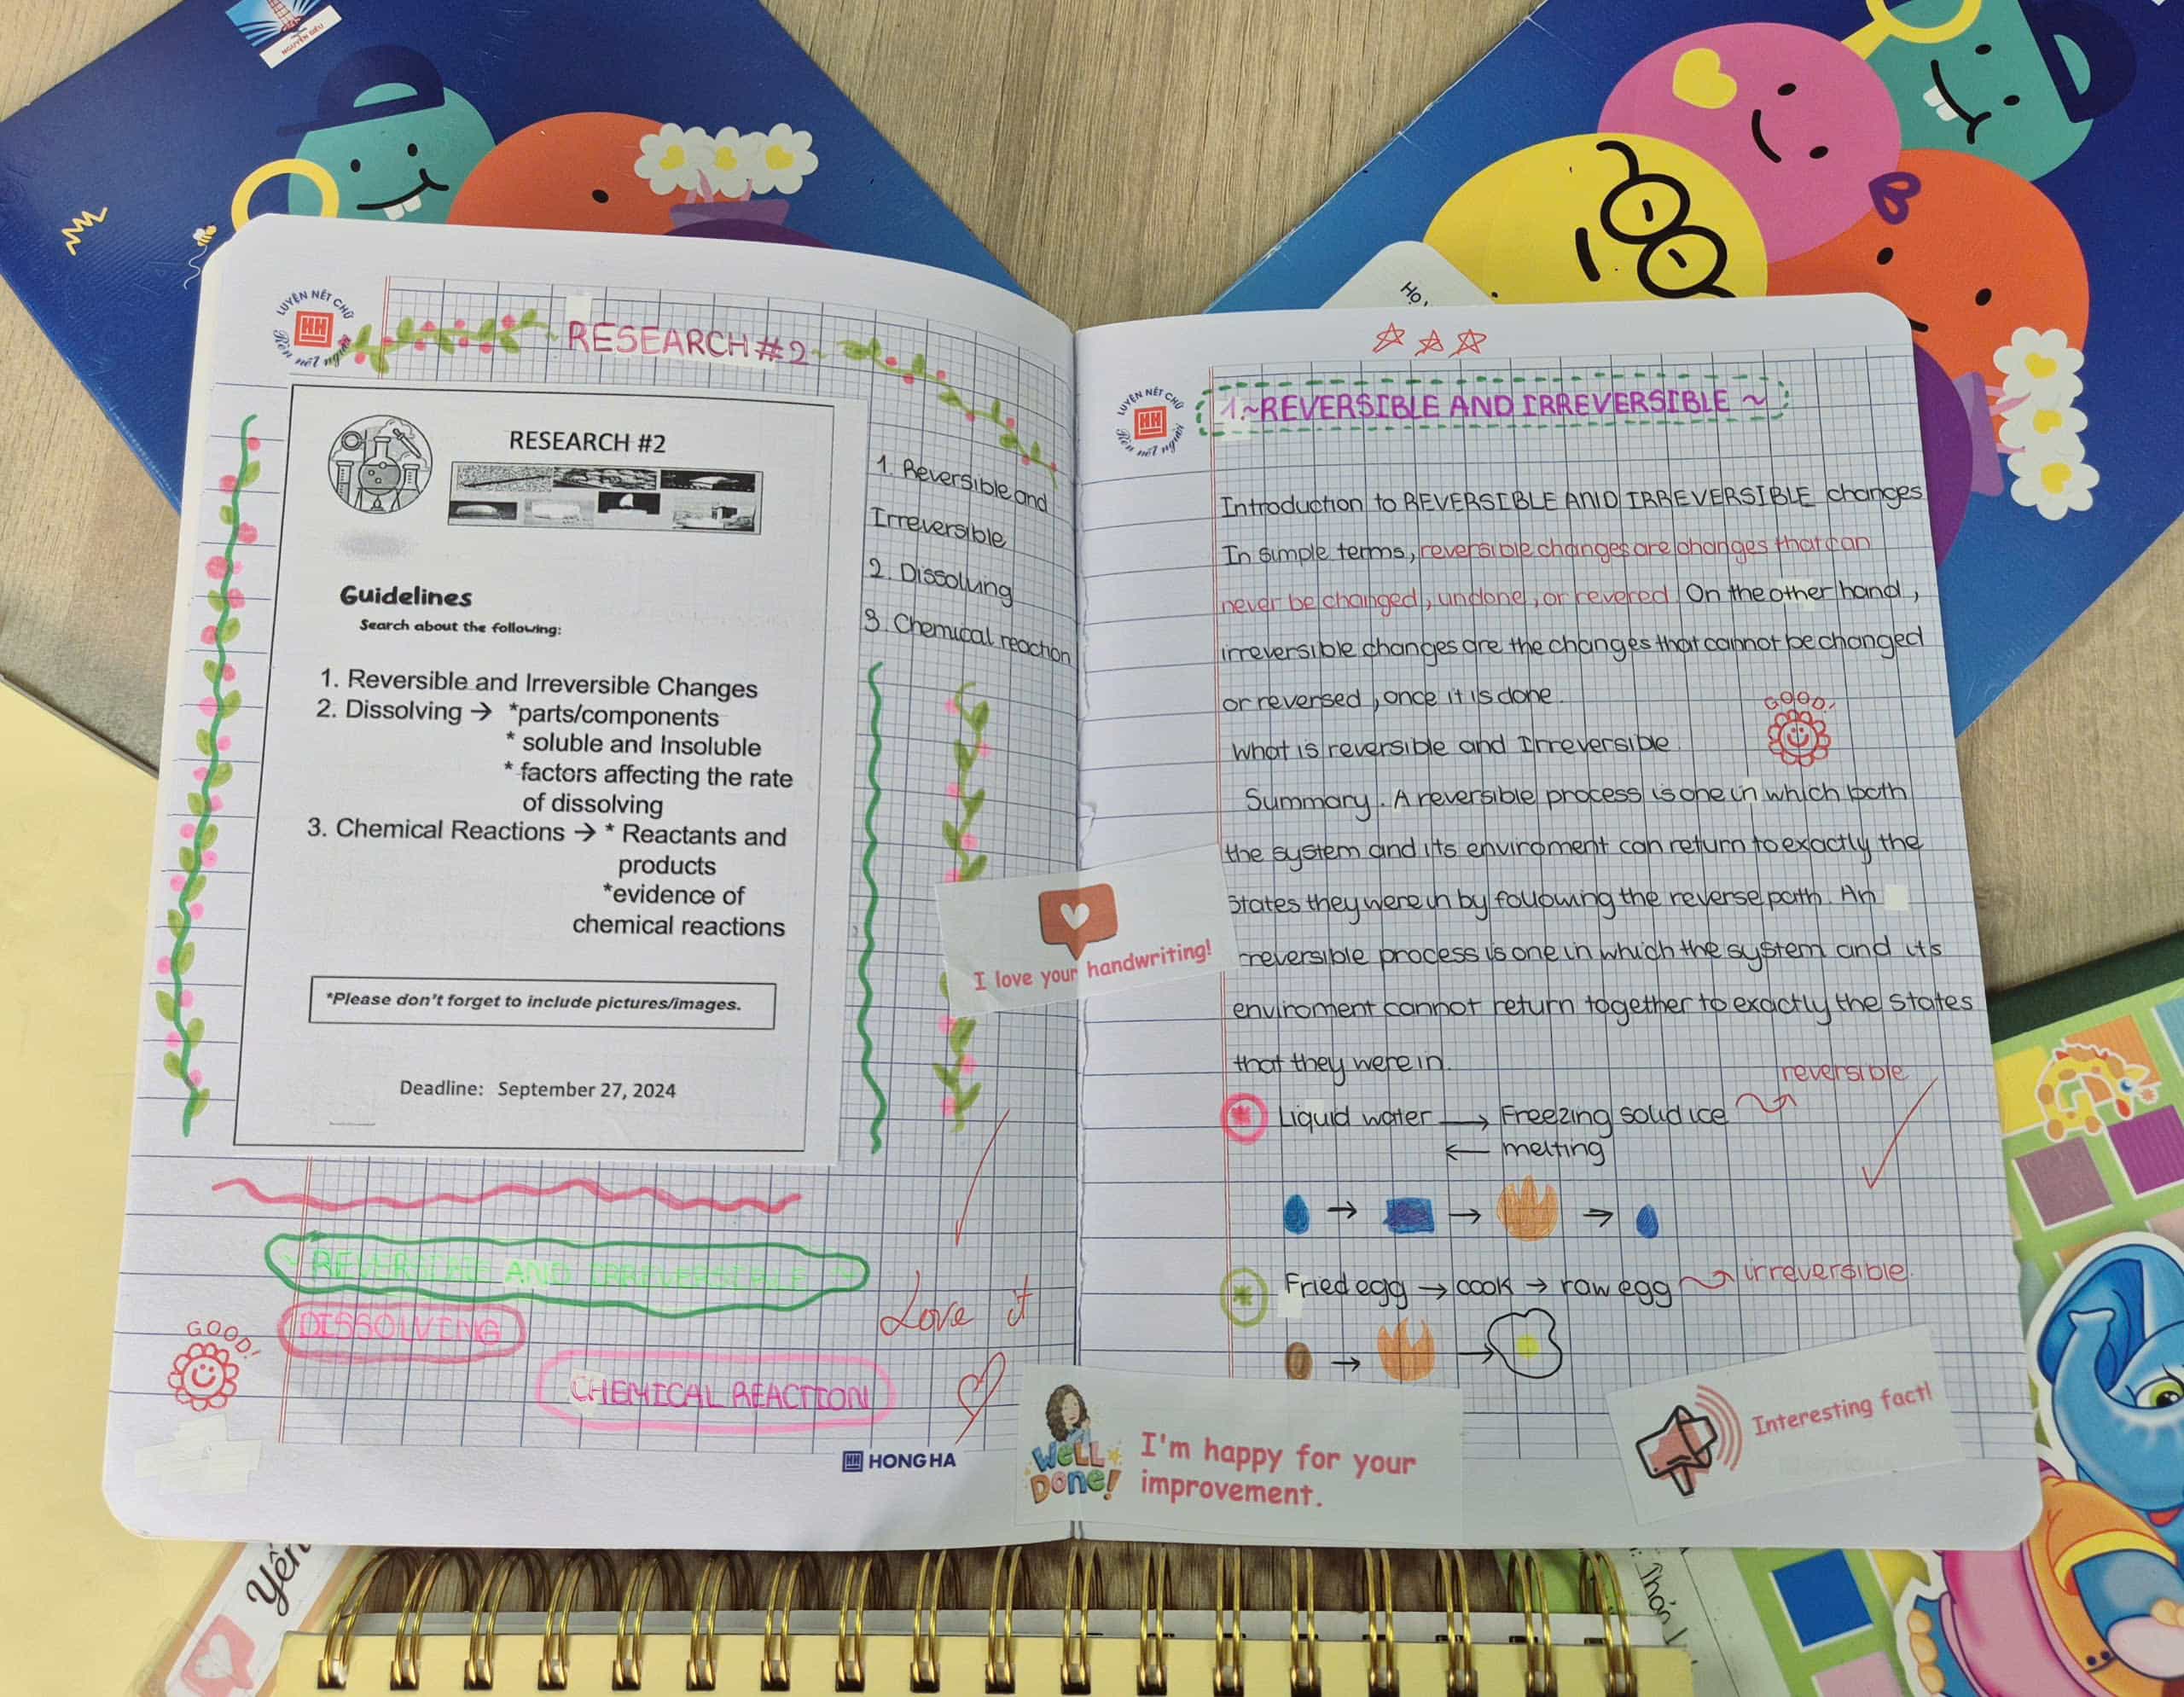 NGUYỄN SIÊU
LUYỆN NÉT CHỮ
HH
Rèn nết người
RESEARCH #2
RESEARCH #2
Guidelines
Search about the following:
1. Reversible and Irreversible Changes
2. Dissolving → *parts/components
* soluble and Insoluble
* factors affecting the rate
of dissolving
3. Chemical Reactions → * Reactants and
products
*evidence of
chemical reactions
*Please don't forget to include pictures/images.
Deadline: September 27, 2024
1. Reversible and
Irreversible
2. Dissolving
3. Chemical reaction
~ REVERSIBLE AND IRREVERSIBLE ~
DISSOLVING
CHEMICAL REACTION
GOOD!
Love it
HH HONG HA
I love your handwriting!
WELL DONE!
I'm happy for your
improvement.
Họ,
LUYỆN NÉT CHỮ
HH
Rèn nết người
1.~REVERSIBLE AND IRREVERSIBLE ~
Introduction to REVERSIBLE AND IRREVERSIBLE changes
In simple terms, reversible changes are changes that can
never be changed, undone, or revered On the other hand,
irreversible changes are the changes that cannot be changed
or reversed, once it is done.
GOOD!
What is reversible and Irreversible.
Summary. A reversible process is one in which both
the system and its enviroment can return to exactly the
states they were in by following the reverse path. An
rreversible process is one in which the system and its
enviroment cannot return together to exactly the states
that they were in.
* Liquid water → Freezing solid ice reversible
← melting
* Fried egg → cook → raw egg irreversible.
Interesting fact!
Yến